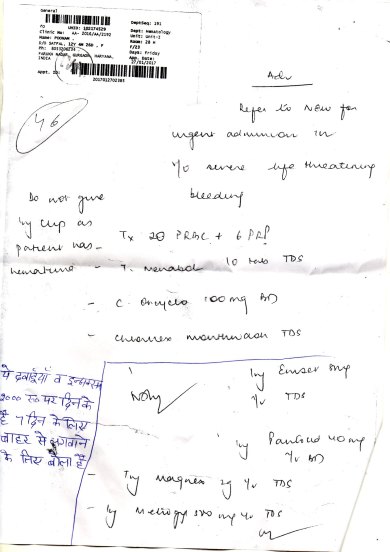 General
DeptSeq: 191
UHID: 102174529
Clinic No: AA- 2016/AA/2192
Name: POONAM
C/O SATPAL, 12Y 4M 26D , F
Ph:
GURGAON, HARYANA,
INDIA
Dept: Hematology
Unit: Unit-I
Room: 20 A
F/23
Days: Friday
App. Date:
27/01/2017
Appt. ID:
2017012702383
46
Adv
Refer to New for
urgent admission in
v/o severe life threatening
bleeding
Do not give
Inj
as
patient has
hematuria
Tx 2U PRBC + 6 PRP
- T.
10 tab TDS
- C.
100 mg BD
- Chlorhex mouthwash TDS
ये दवाईयाँ व इन्जेक्शन
2000 रू पर दिन के
है 7 दिन के लिए
बाहर से मंगवाने
के लिए बोला है
Inj Emset 8mg
IV TDS
Inj Pantocid 40mg
IV BD
- Inj Magnex 2g IV TDS
- Inj Metrogyl 500 mg IV TDS